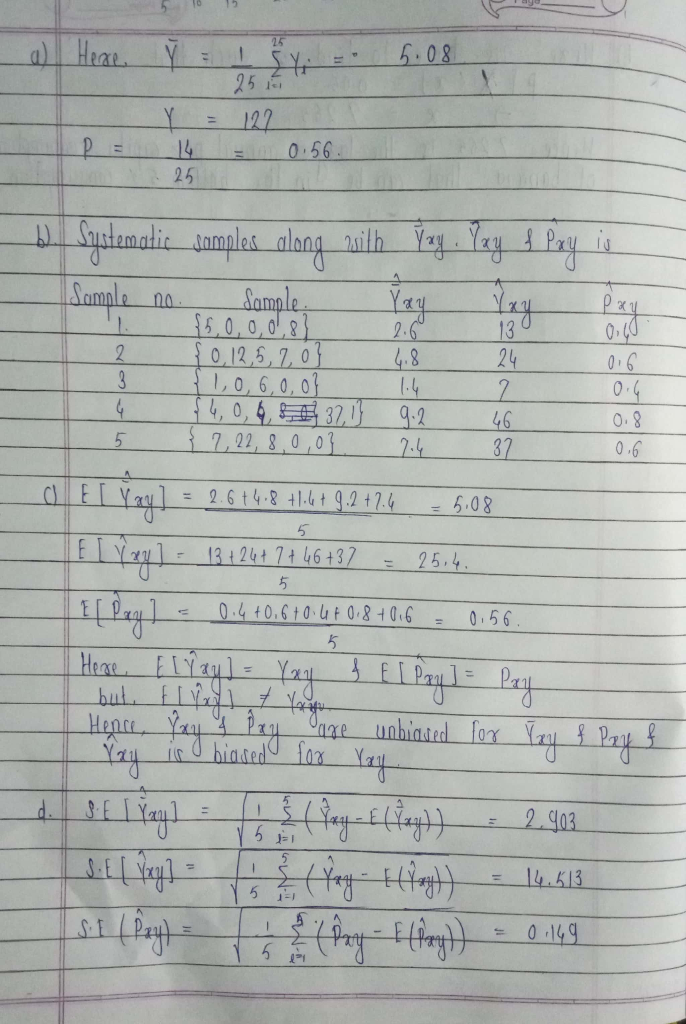 a) Here, Ȳ = 1/25 25Σi=1 Yi = 5.08
Y = 127
P = 14/25 = 0.56.
b) Systematic samples along with Ȳ̂xy, Ŷxy & P̂xy is
Sample no. Sample. Ȳ̂xy Ŷxy P̂xy
1. {5,0,0,0,8} 2.6 13 0.4
2 {0,12,5,7,0} 4.8 24 0.6
3 {1,0,6,0,0} 1.4 7 0.4
4 {4,0,4, 37,1} 9.2 46 0.8
5 {7,22,8,0,0} 7.4 37 0.6
c) E[Ȳ̂xy] = 2.6+4.8+1.4+9.2+7.4 / 5 = 5.08
E[Ŷxy] = 13+24+7+46+37 / 5 = 25.4.
E[P̂xy] = 0.4+0.6+0.4+0.8+0.6 / 5 = 0.56.
Here, E[Ȳ̂xy] = Yxy & E[P̂xy] = Pxy
but, E[Ŷxy] ≠ Yxy.
Hence, Ȳ̂xy & P̂xy are unbiased for Ȳxy & Pxy &
Ŷxy is biased for Yxy.
d. S.E[Ȳ̂xy] = √ 1/5 5Σi=1 (Ȳ̂xy - E(Ȳ̂xy)) = 2.903
S.E[Ŷxy] = √ 1/5 5Σi=1 (Ŷxy - E(Ŷxy)) = 14.513
S.E(P̂xy) = √ 1/5 5Σi=1 (P̂xy - E(P̂xy)) = 0.149